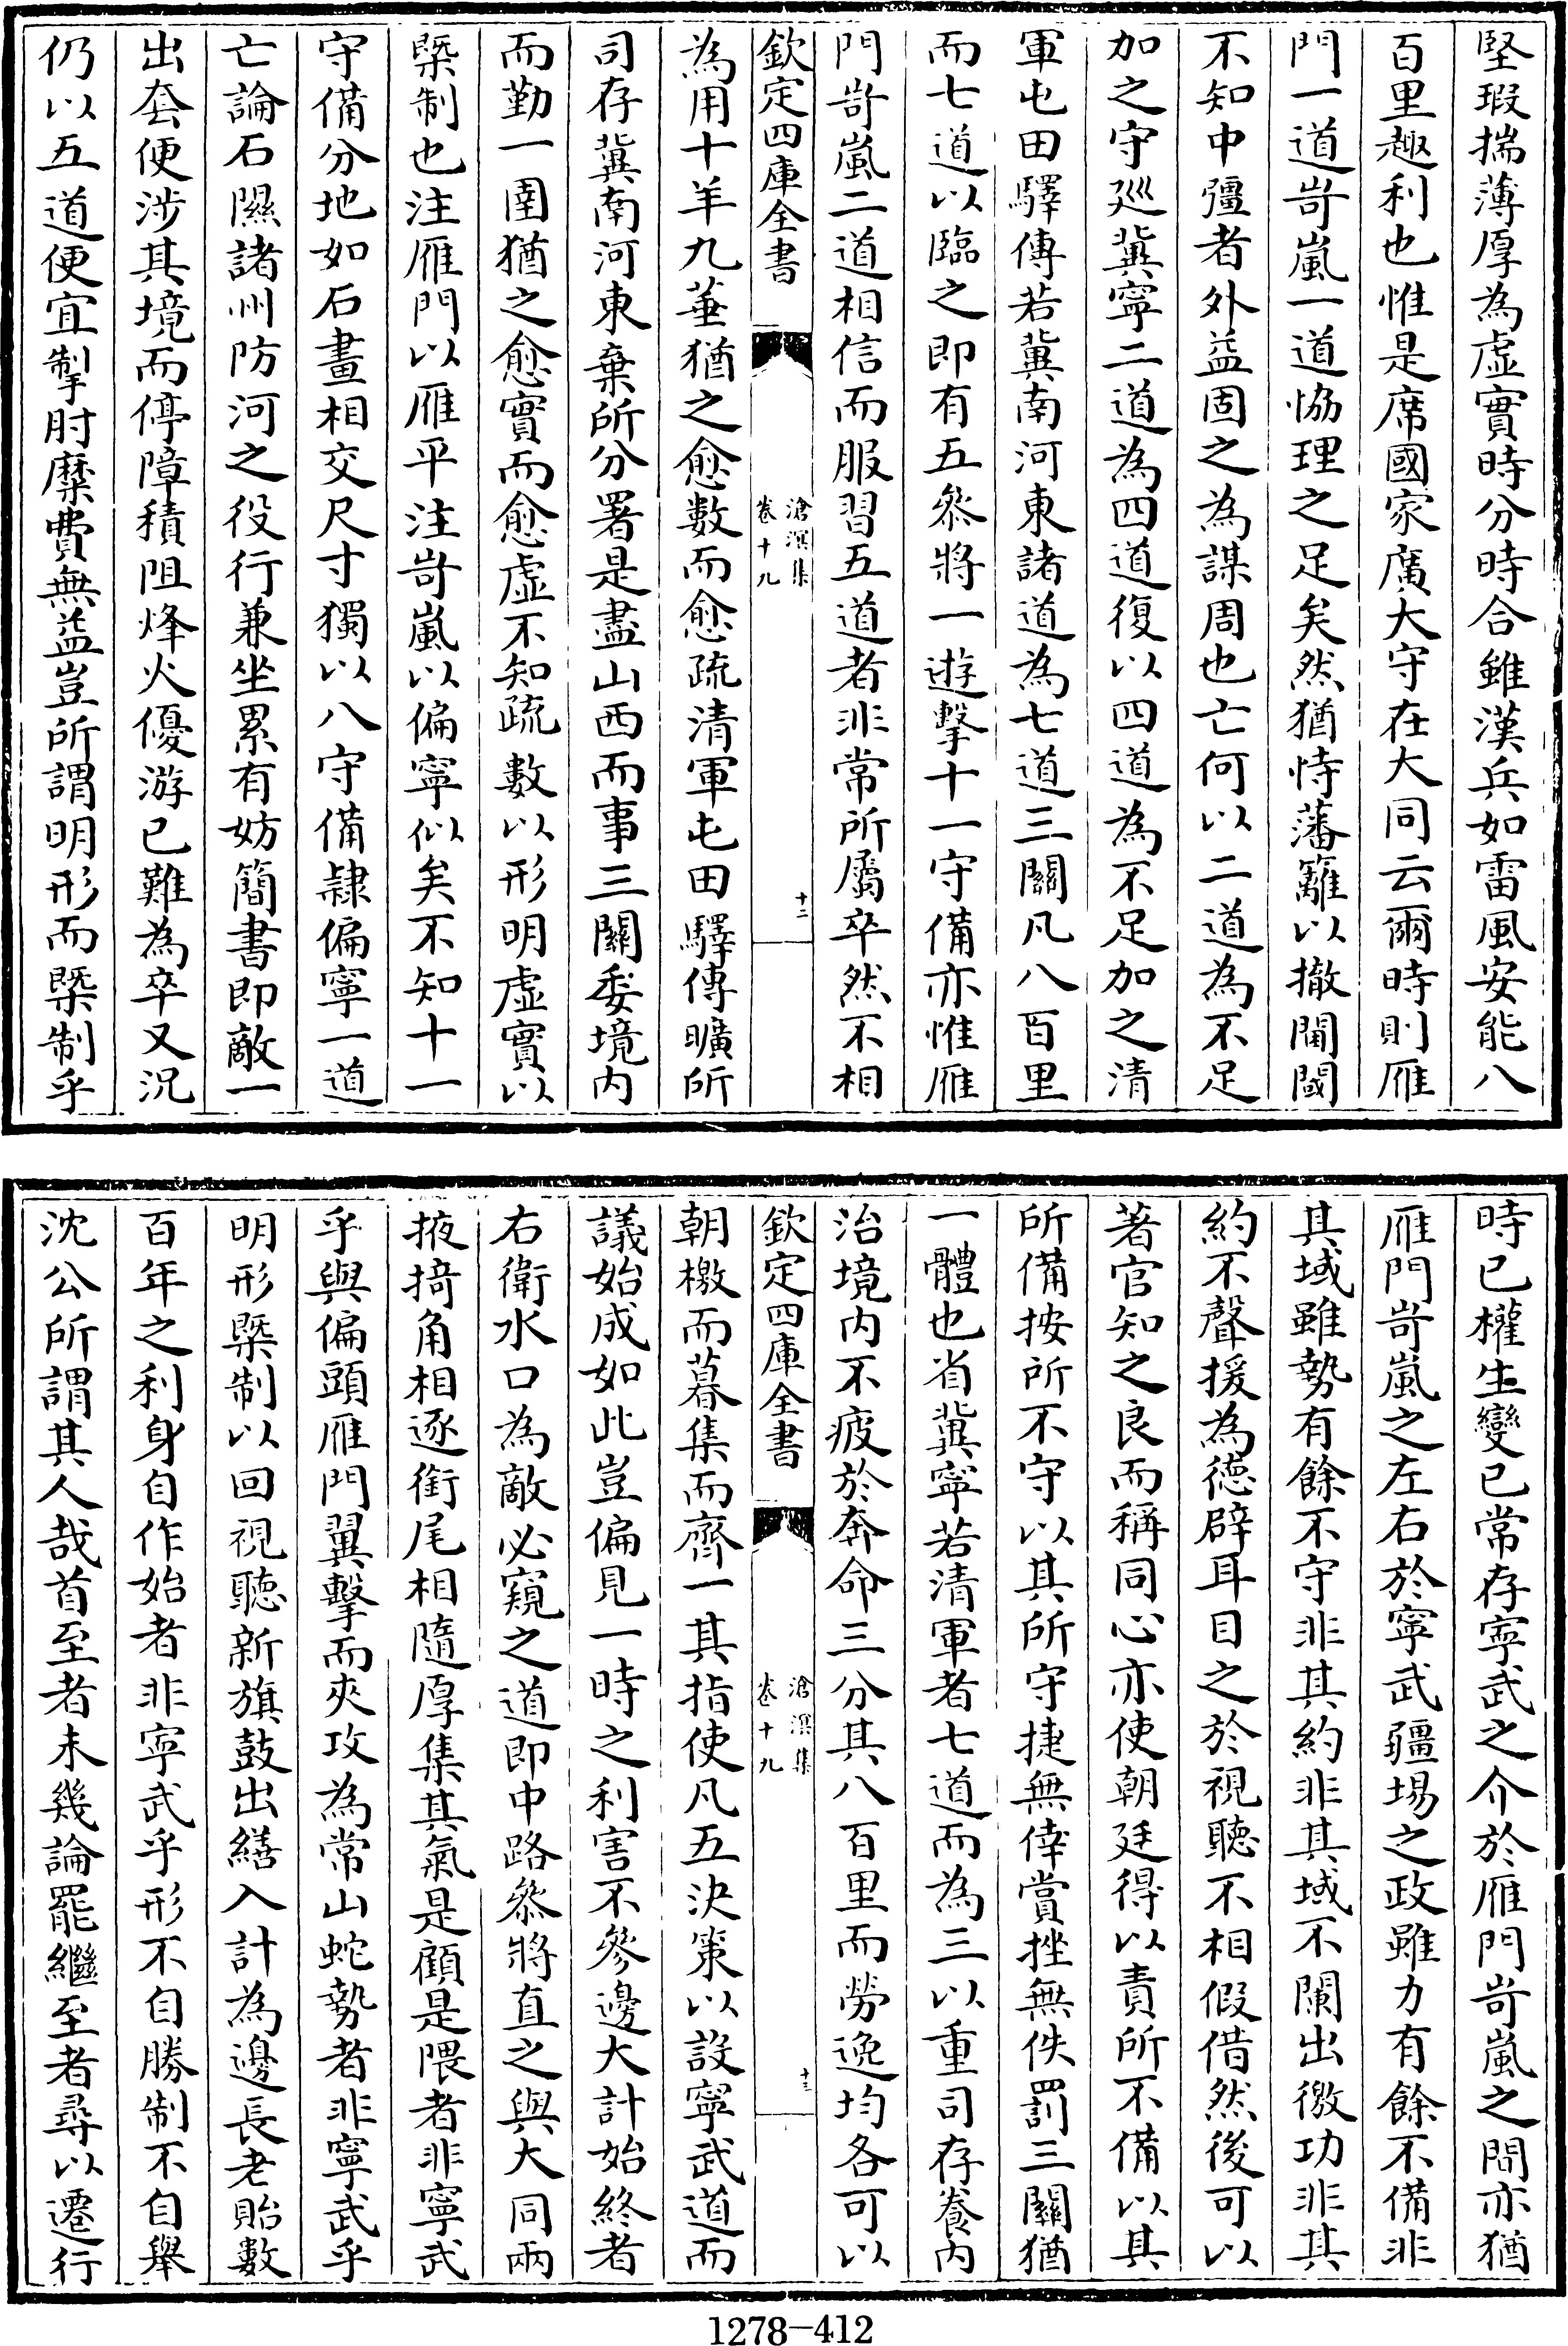 堅瑕揣薄厚為虛實時分時合雖漢兵如雷風安能八
百里趣利也惟是席國家廣大守在大同云爾時則雁
門一道岢嵐一道協理之足矣然猶恃藩籬以撤閫閾
不知中彊者外益固之為謀周也亡何以二道為不足
加之守廵冀寧二道為四道復以四道為不足加之清
軍屯田驛傳若冀南河東諸道為七道三關凡八百里
而七道以臨之即有五叅將一遊擊十一守備亦惟雁
門岢嵐二道相信而服習五道者非常所屬卒然不相
欽定四庫全書
滄溟集
卷十九
十二
為用十羊九菙猶之愈數而愈疏清軍屯田驛傳曠所
司存冀南河東棄所分署是盡山西而事三關委境內
而勤一圉猶之愈實而愈虛不知疏數以形明虛實以
槩制也注雁門以雁平注岢嵐以偏寧似矣不知十一
守備分地如石畫相交尺寸獨以八守備隷偏寧一道
亡論石隰諸州防河之役行兼坐累有妨簡書即敵一
出套便涉其境而停障積阻烽火優游已難為卒又況
仍以五道便宜掣肘糜費無益豈所謂明形而槩制乎
時已權生變已常存寧武之介於雁門岢嵐之間亦猶
雁門岢嵐之左右於寧武疆埸之政雖力有餘不備非
其域雖勢有餘不守非其約非其域不闌出徼功非其
約不聲援為德辟耳目之於視聽不相假借然後可以
著官知之良而稱同心亦使朝廷得以責所不備以其
所備按所不守以其所守捷無倖賞挫無佚罰三關猶
一體也省冀寧若清軍者七道而為三以重司存養內
治境內不疲於奔命三分其八百里而勞逸均各可以
欽定四庫全書
滄溟集
卷十九
十三
朝檄而暮集而齊一其指使凡五決策以設寧武道而
議始成如此豈偏見一時之利害不參邊大計始終者
右衛水口為敵必窺之道即中路叅將直之與大同兩
掖掎角相逐銜尾相隨厚集其氣是顧是隈者非寧武
乎與偏頭雁門翼擊而夾攻為常山蛇勢者非寧武乎
明形槩制以回視聽新旗鼓出繕入計為邊長老貽數
百年之利身自作始者非寧武乎形不自勝制不自舉
沈公所謂其人哉首至者未幾論罷繼至者尋以遷行
1278-412